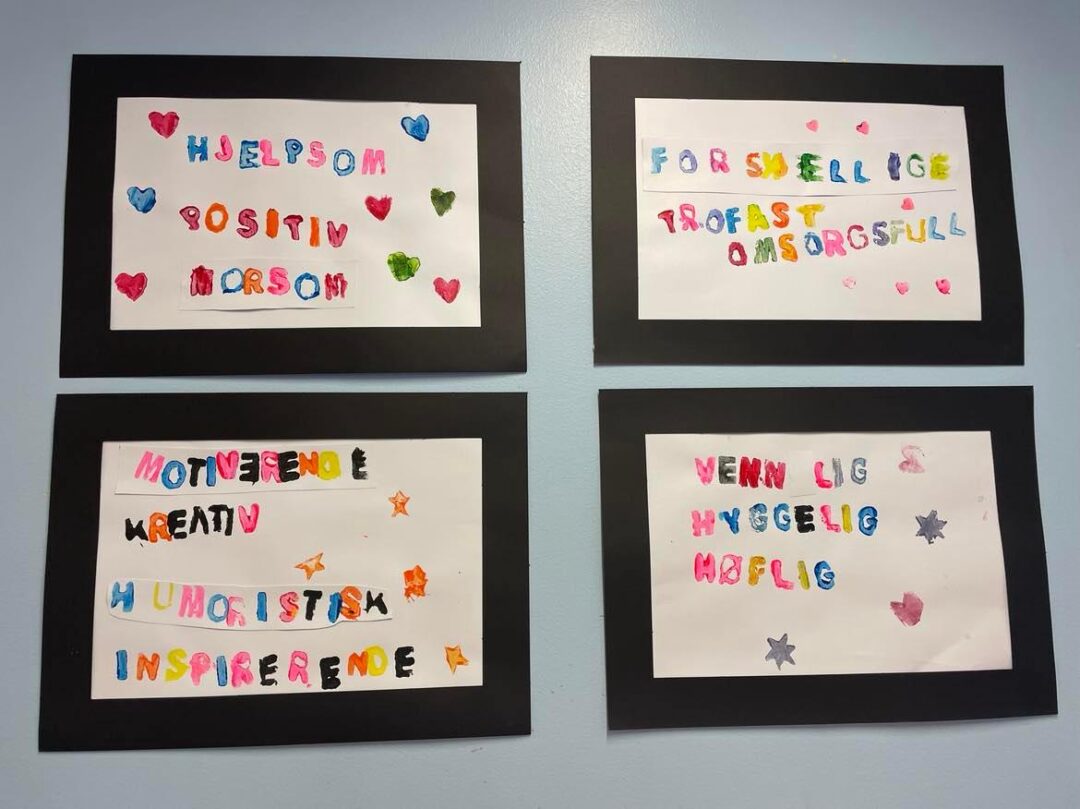 HJELPSOM
POSITIV
MORSOM
FORSKELLIGE
TROFAST
OMSORGSFULL
MOTIVERENDE
KREATIV
HUMORISTISK
INSPIRERENDE
VENNLIG
HYGGELIG
HØFLIG